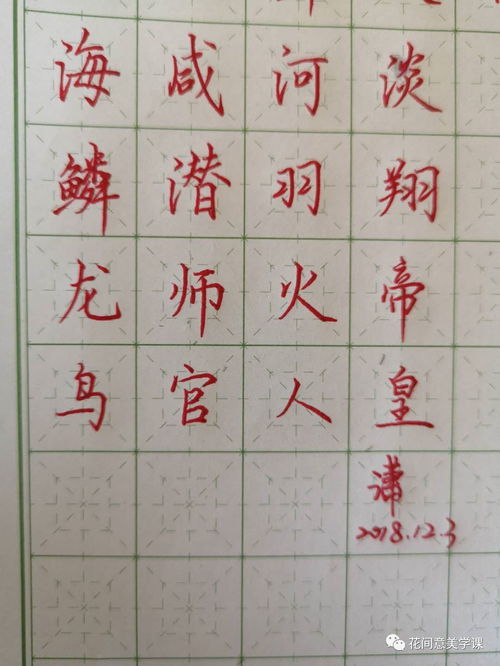 海咸河淡
鳞潜羽翔
龙师火帝
鸟官人皇
2018.12.3
花间意美学课